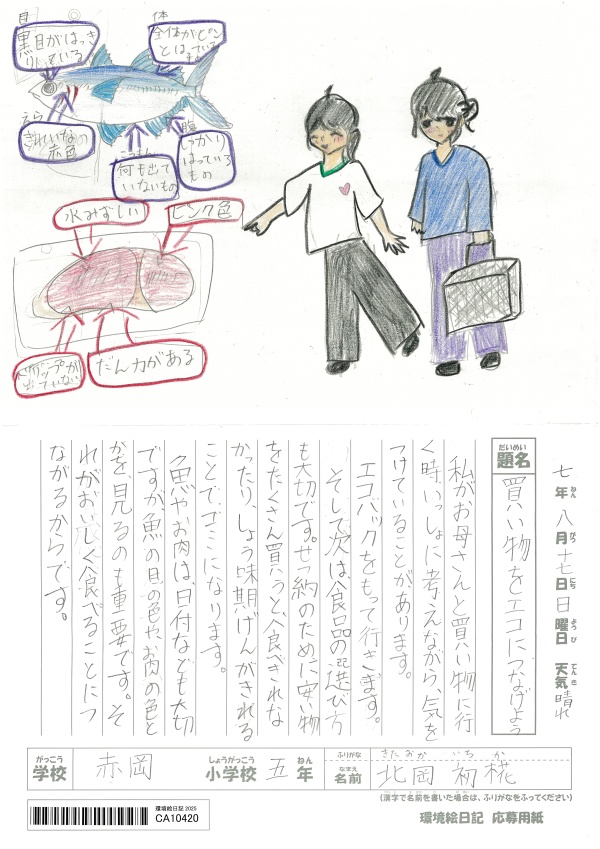 目
黒目がはっきりしている
体
全体がピンとはっているもの
えら
きれいな赤色
こうもん
何も出ていないもの
腹
しっかりはっているもの
水みずしい
ピンク色
ドリップが出ていない
だん力がある
七年八月十七日日曜日 天気 晴れ
ねん がつ にち ようび てんき
だいめい
題名
買い物をエコにつなげよう
私がお母さんと買い物に行
く時、いっしょに考えながら、気を
つけていることがあります。
エコバックをもって行きます。
そして次は、食品の選び方
も大切です。せつ約のために安い物
をたくさん買うと、食べきれな
かったり、しょう味期げんがきれる
ことで、ゴミになります。
魚やお肉は、日付なども大切
ですが魚の目の色や、お肉の色と
かを、見るのも重要です。そ
れがおいしく食べることにつ
ながるからです。
がっこう
学校 赤岡
しょうがっこう ねん
小学校 五年
ふりがな きたおか いちか
なまえ
名前 北岡 初椛
(漢字で名前を書いた場合は、ふりがなをふってください)
環境絵日記 2025
CA10420
環境絵日記 応募用紙